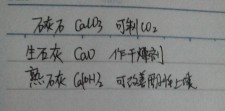 石灰石 CaCO₃ 可制CO₂
生石灰 CaO 作干燥剂
熟石灰 Ca(OH)₂ 可改善酸性土壤